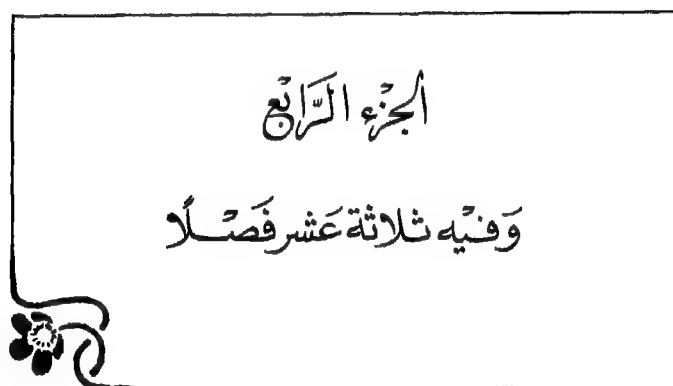 الجزء الرَّابْع
وَفيْه ثلاثة عَشر فَصْلًا